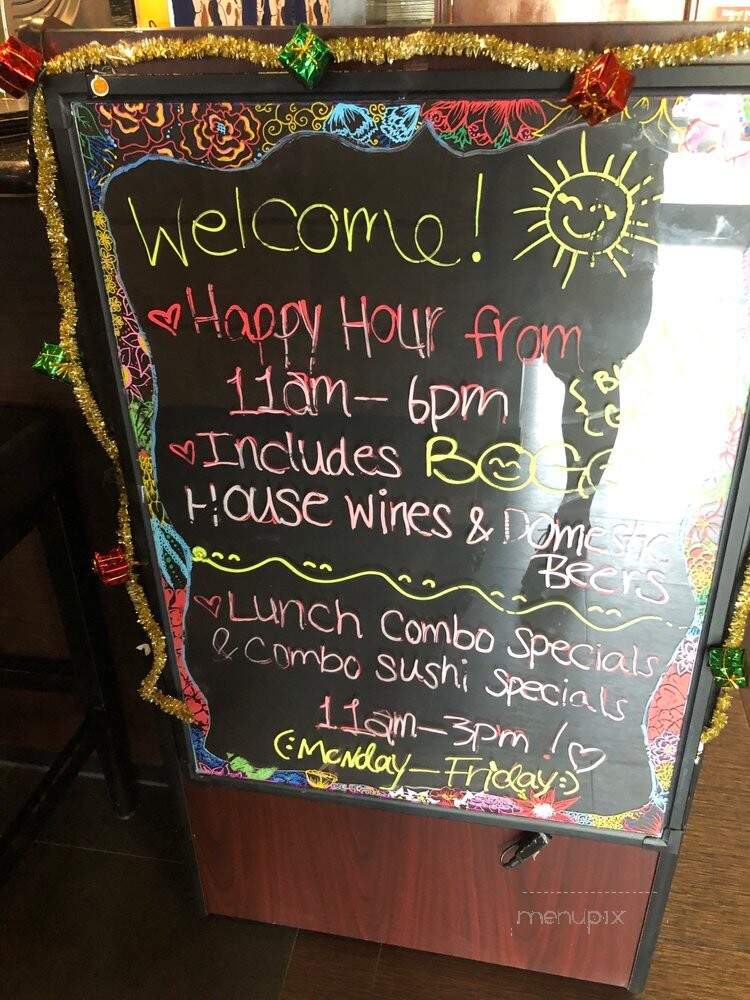 Welcome!
Happy Hour from
11am - 6pm
Includes BOGO
House wines & Domestic
Beers
Lunch Combo Specials
& Combo sushi specials
11am-3pm!
(: Monday - Friday :)
menupix